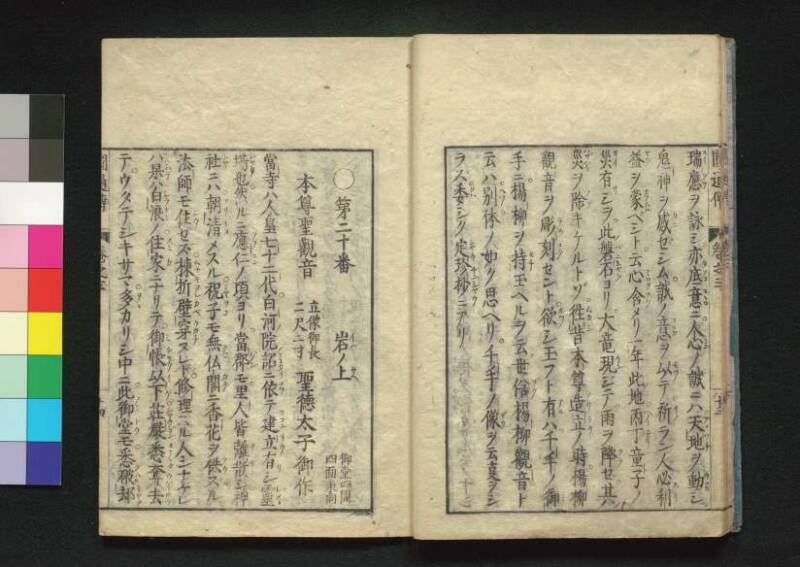 瑞應ヲ詠ミ亦底意ニ人心ノ誠ニハ天地ヲ動シ
鬼神ヲ感セシム誠ノ意ヲ以テ祈ラン人必利
益ヲ蒙ベシト云心含メリ一年此地丙丁童子ノ
災有シヲ此盤石ヨリ大竜現ジテ雨ヲ降セ其
災ヲ除キケルトゾ徃昔本尊造立ノ時楊柳
觀音ヲ彫刻セント欲シ玉フト有ハ千手ノ御
手ニ楊柳ヲ持玉ヘルヲ云世俗楊柳觀音ト
云ハ別体ノ如ク思ヘリ千手ノ像ヲ云
ラス委シク定珍抄ニアリ
○第二十番 岩ノ上
本尊聖觀音 立像御長二尺二寸 聖德太子御作 御堂四間四面東向
當寺ハ人皇七十二代白河院詔ニ依テ建立有シ霊
場也然ルニ應仁ノ頃ヨリ當郡モ里人皆離散シ神
社ニハ朝清メスル祝子モ無仏閣ニ香花ヲ供スル
法師モ住セズ棟折壁穿ヌレド修理ヘル人シナケレ
バ果ハ白浪ノ住家ニナリテ御帳以下荘嚴悉奪去
テウタテシキサマ多カリシ中ニ此御堂モ悉破却